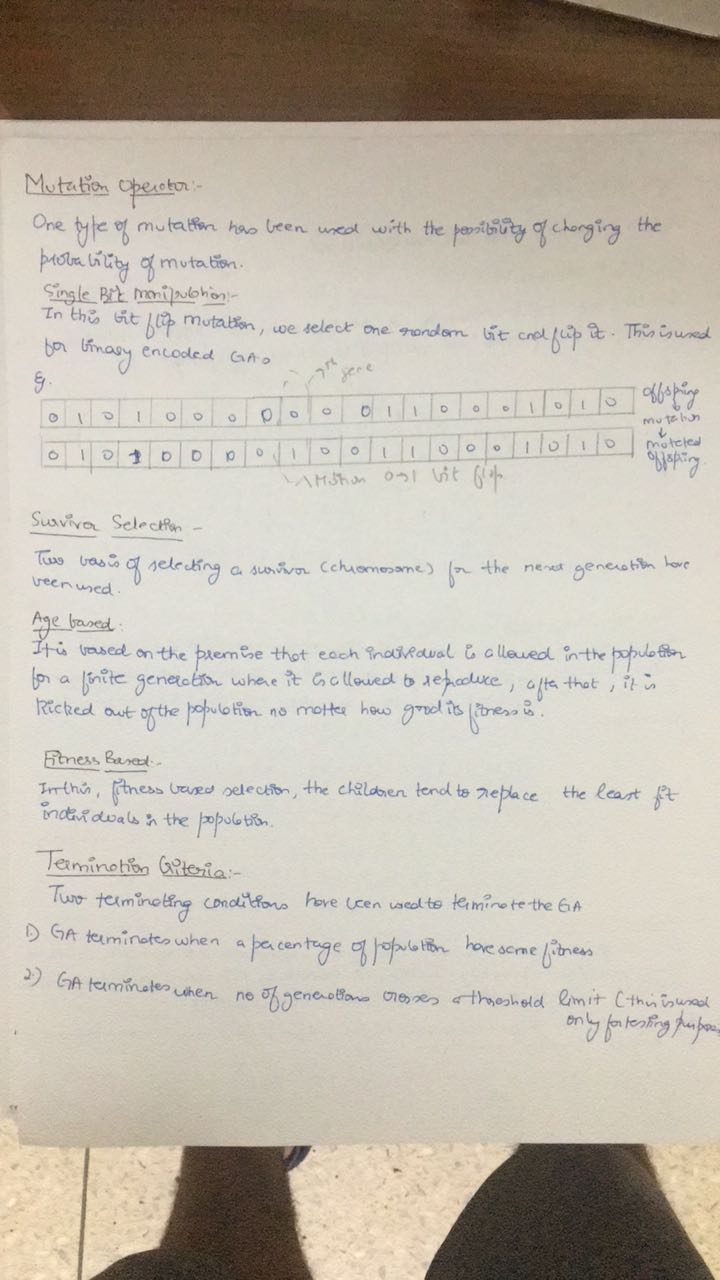 Mutation Operator:-
One type of mutation has been used with the possibility of changing the
probability of mutation.
Single Bit Manipulation:-
In this bit flip mutation, we select one random bit and flip it. This is used
for binary encoded GAs
Eg.
gene
0 1 0 1 0 0 0 0 0 0 0 1 1 0 0 0 1 0 1 0 offspring
mutation
0 1 0 1 0 0 0 0 1 0 0 1 1 0 0 0 1 0 1 0 mutated
offspring.
0→1 bit flip
Survivor Selection -
Two basis of selecting a survivor (chromosome) for the next generation have
been used.
Age based:
It is based on the premise that each individual is allowed in the population
for a finite generation where it is allowed to reproduce, after that, it is
kicked out of the population no matter how good its fitness is.
Fitness Based:-
In this, fitness based selection, the children tend to replace the least fit
individuals in the population.
Termination Criteria:-
Two terminating conditions have been used to terminate the GA
1) GA terminates when a percentage of population have same fitness
2.) GA terminates when no of generations crosses a threshold limit (this is used
only for testing purpose